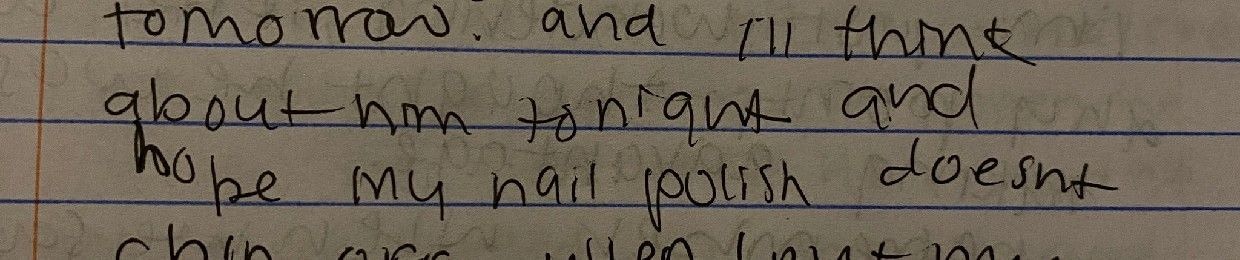 tomorrow. and I'll think
about him tonight and
hope my nail polish doesnt
chip when I put